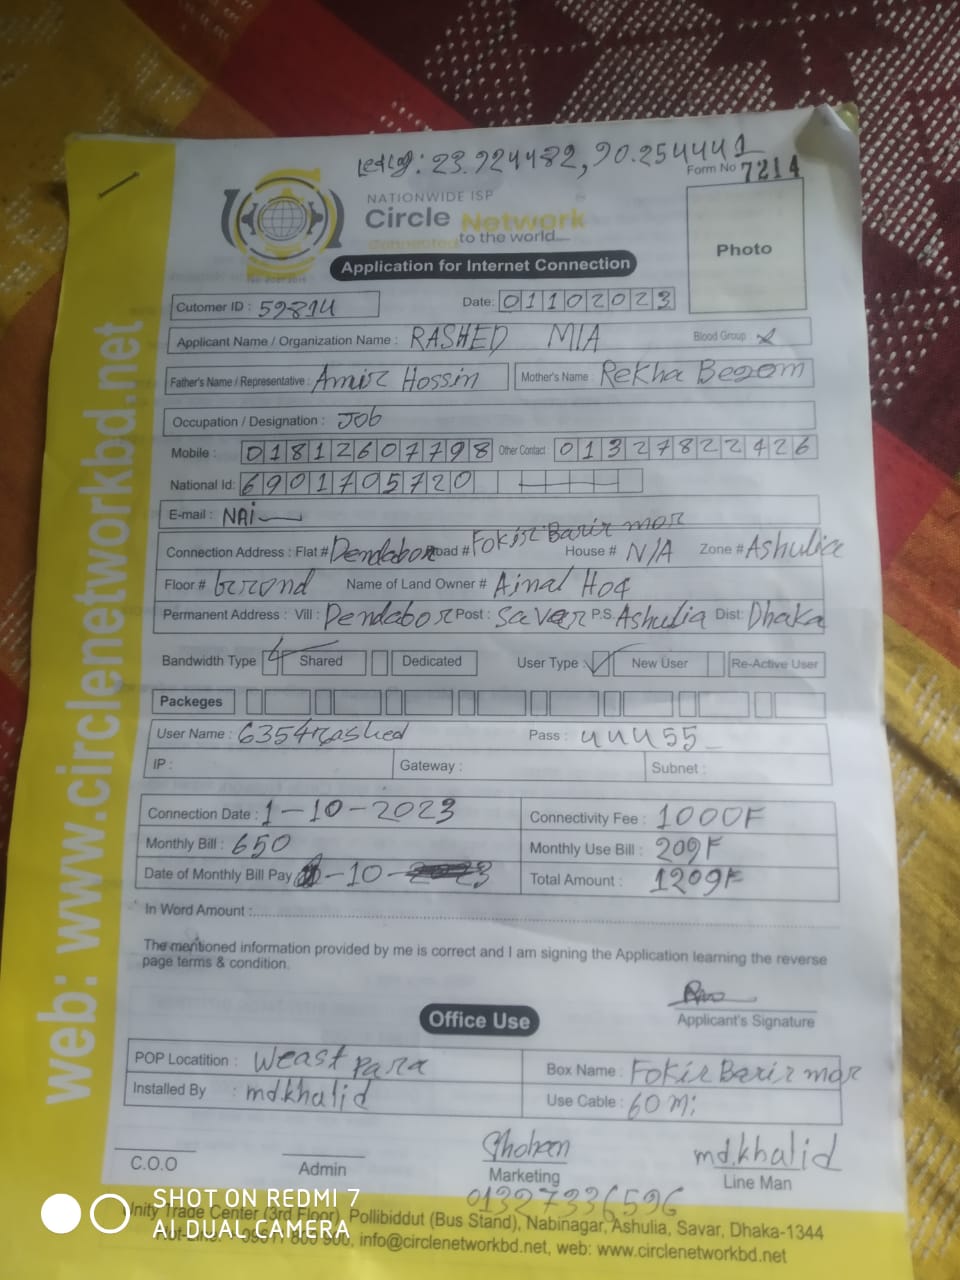 23.924482, 90.254441
Form No 7214
NATIONWIDE ISP
Circle Network
Connected to the world...
Photo
Application for Internet Connection
Cutomer ID : 59814 Date: 01102023
Applicant Name / Organization Name : RASHED MIA Blood Group :
Father's Name / Representative : Amir Hossin Mother's Name : Rekha Begom
Occupation / Designation : Job
Mobile : 01812607798 Other Contact : 01327822426
National Id: 6901705720
E-mail : NAi
Connection Address : Flat # Dendabor Road # Fokir Barir mor House # N/A Zone # Ashulia
Floor # Name of Land Owner # Ainal Hoq
Permanent Address : Vill : Dendabor Post : Savar P.S. Ashulia Dist: Dhaka
Bandwidth Type Shared Dedicated User Type New User Re-Active User
Packeges
User Name : 6354rashed Pass : 44455
IP : Gateway : Subnet :
Connection Date : 1-10-2023 Connectivity Fee : 1000F
Monthly Bill : 650 Monthly Use Bill : 209F
Date of Monthly Bill Pay -10- Total Amount : 1209F
In Word Amount :
The mentioned information provided by me is correct and I am signing the Application learning the reverse
page terms & condition.
Applicant's Signature
Office Use
POP Locatition : Weast para Box Name : Fokir Barir mor
Installed By : md.khalid Use Cable : 60 mi
Shohan md.khalid
C.O.O Admin Marketing Line Man
01327336596
Unity Trade Center (3rd Floor), Pollibiddut (Bus Stand), Nabinagar, Ashulia, Savar, Dhaka-1344
info@circlenetworkbd.net, web: www.circlenetworkbd.net
web: www.circlenetworkbd.net
SHOT ON REDMI 7
AI DUAL CAMERA